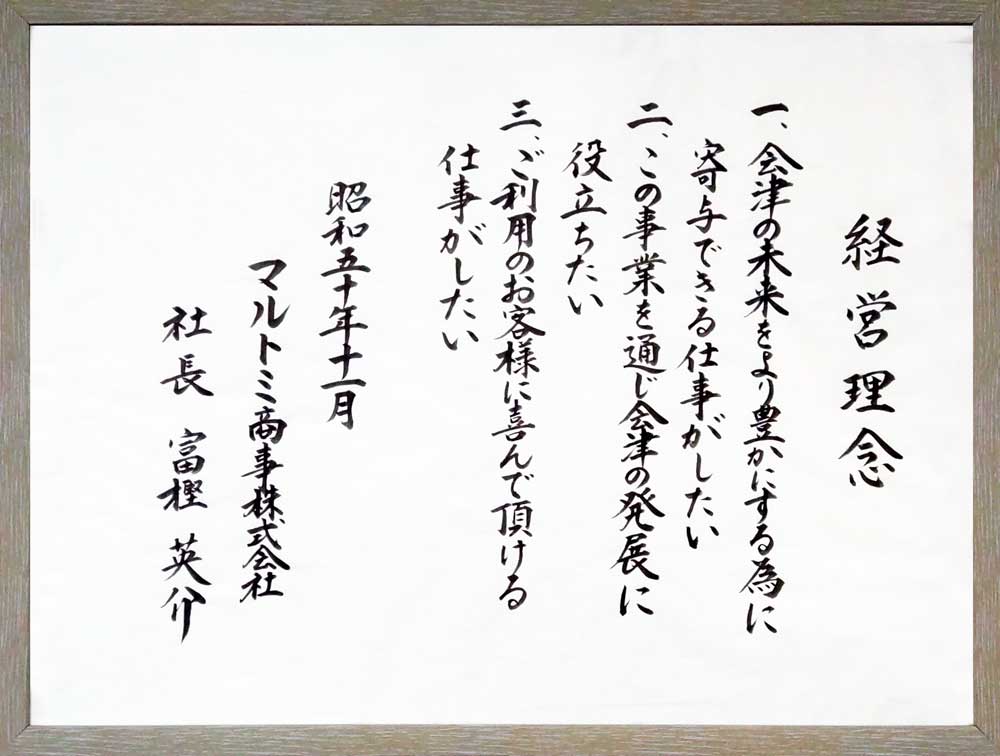 経営理念
一、会津の未来をより豊かにする為に
寄与できる仕事がしたい
二、この事業を通じ会津の発展に
役立ちたい
三、ご利用のお客様に喜んで頂ける
仕事がしたい
昭和五十年十一月
マルトミ商事株式会社
社長 富樫 英介